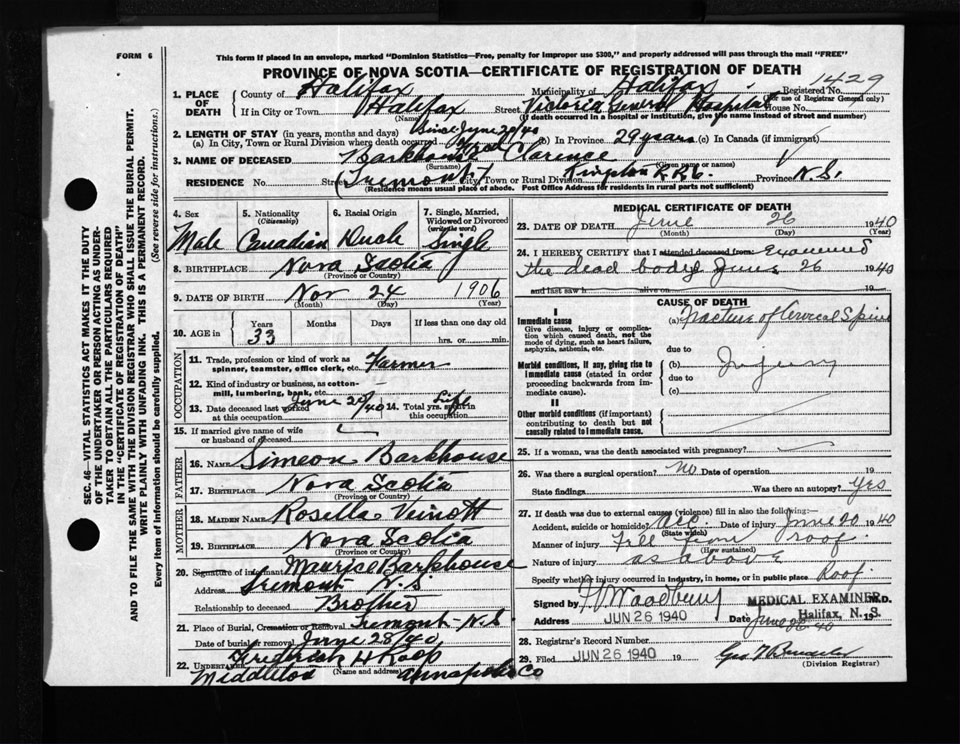 FORM 6
This form if placed in an envelope, marked "Dominion Statistics—Free, penalty for improper use $300," and properly addressed will pass through the mail "FREE"
PROVINCE OF NOVA SCOTIA—CERTIFICATE OF REGISTRATION OF DEATH
1429
SEC. 46—VITAL STATISTICS ACT MAKES IT THE DUTY
OF THE UNDERTAKER OR PERSON ACTING AS UNDER-
TAKER TO OBTAIN ALL THE PARTICULARS REQUIRED
IN THE "CERTIFICATE OF REGISTRATION OF DEATH"
AND TO FILE THE SAME WITH THE DIVISION REGISTRAR WHO SHALL ISSUE THE BURIAL PERMIT.
WRITE PLAINLY WITH UNFADING INK. THIS IS A PERMANENT RECORD.
Every item of information should be carefully supplied. (See reverse side for instructions.)
1. PLACE OF DEATH County of Halifax Municipality of Halifax Registered No.
(For use of Registrar General only)
If in City or Town Halifax Street Victoria General Hospital House No.
(Name) (If death occurred in a hospital or institution, give the name instead of street and number)
2. LENGTH OF STAY (in years, months and days) Since June 20/40
(a) In City, Town or Rural Division where death occurred (b) In Province 29 years (c) In Canada (if immigrant)
3. NAME OF DECEASED Barkhouse Clarence
(Surname) (Given name or names)
RESIDENCE No. Street (Tremont) City, Town or Rural Division Kingston R.R. Province N.S.
(Residence means usual place of abode. Post Office Address for residents in rural parts not sufficient)
4. Sex Male
5. Nationality (Citizenship) Canadian
6. Racial Origin Duch
7. Single, Married, Widowed or Divorced (write the word) Single
8. BIRTHPLACE Nova Scotia
(Province or Country)
9. DATE OF BIRTH Nov 24 1906
(Month) (Day) (Year)
10. AGE in Years Months Days If less than one day old
33 hrs. or min.
OCCUPATION
11. Trade, profession or kind of work as spinner, teamster, office clerk, etc. Farmer
12. Kind of industry or business, as cotton-mill, lumbering, bank, etc.
13. Date deceased last worked at this occupation June 20/40 14. Total yrs. spent in this occupation Life
15. If married give name of wife or husband of deceased
FATHER
16. NAME Simeon Barkhouse
17. BIRTHPLACE Nova Scotia
(Province or Country)
MOTHER
18. MAIDEN NAME Rosella Veinott
19. BIRTHPLACE Nova Scotia
(Province or Country)
20. Signature of informant Maurice Barkhouse
Address Tremont N.S.
Relationship to deceased Brother
21. Place of Burial, Cremation or Removal Tremont N.S.
Date of burial or removal June 28/40
22. UNDERTAKER Frederick H Roop
Middleton (Name and address) Annapolis Co
MEDICAL CERTIFICATE OF DEATH
23. DATE OF DEATH June 26 1940
(Month) (Day) (Year)
24. I HEREBY CERTIFY that I attended deceased from Examined
the dead body June 26 1940
and last saw h alive on 19
CAUSE OF DEATH
I
Immediate cause (a) Fracture of Cervical Spine
Give disease, injury or complication which caused death, not the mode of dying, such as heart failure, asphyxia, asthenia, etc.
due to
Morbid conditions, if any, giving rise to immediate cause (stated in order proceeding backwards from immediate cause). (b) Injury
due to
(c)
II
Other morbid conditions (if important) contributing to death but not causally related to immediate cause.
25. If a woman, was the death associated with pregnancy?
26. Was there a surgical operation? No Date of operation 19
State findings Was there an autopsy? Yes
27. If death was due to external causes (violence) fill in also the following:
Accident, suicide or homicide? Acc. Date of injury June 20 1940
(State which)
Manner of injury Fell from roof
(How sustained)
Nature of injury as above
Specify whether injury occurred in industry, in home, or in public place Roof.
Signed by Woodbury M.D.
MEDICAL EXAMINER
Halifax, N. S.
Address JUN 26 1940 Date June 26 40 19
28. Registrar's Record Number
29. Filed JUN 26 1940 19
(Division Registrar)